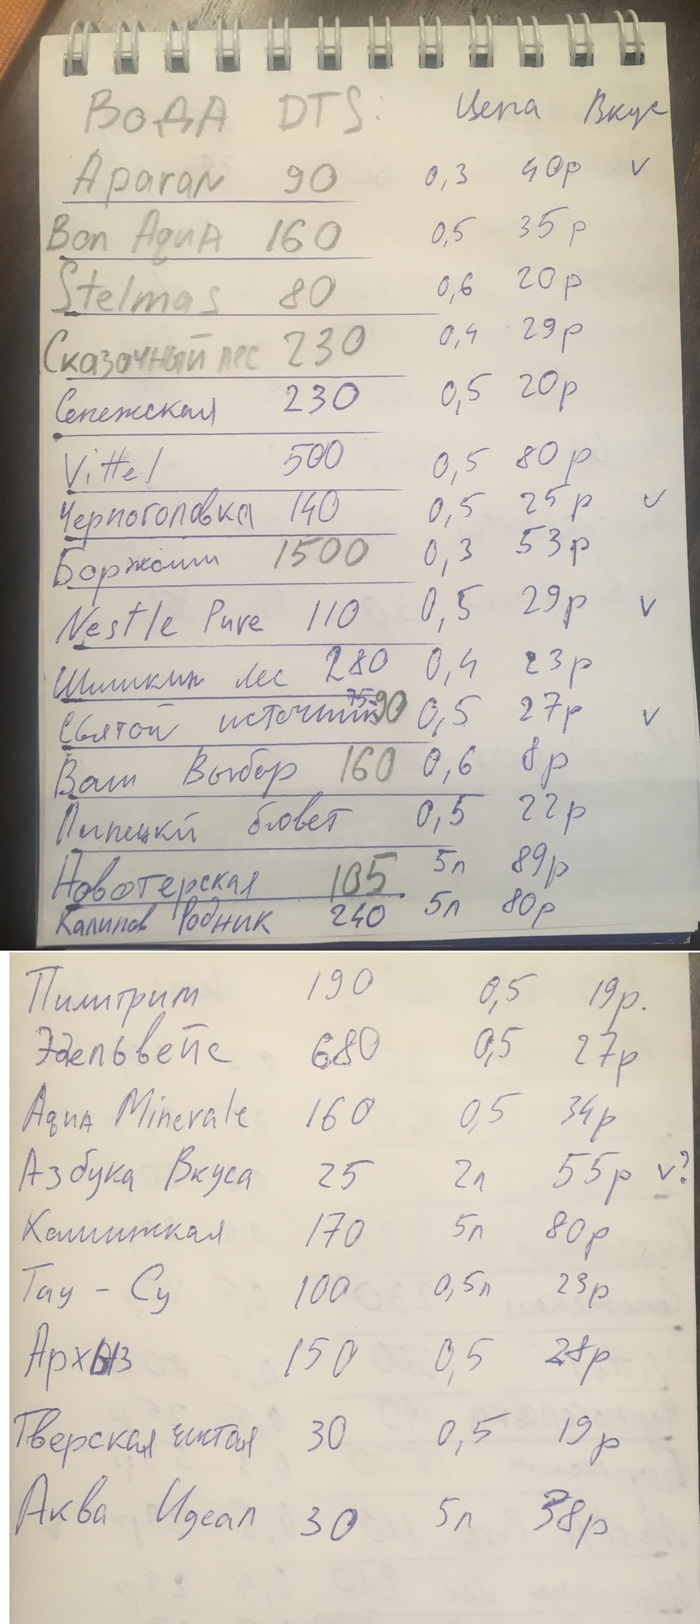 Вода DTS: Цена Вкус
Aparan 90 0,3 40р v
Bon Aqua 160 0,5 35р
Stelmas 80 0,6 20р
Сказочный лес 230 0,4 29р
Сенежская 230 0,5 20р
Vittel 500 0,5 80р
Черноголовка 140 0,5 25р v
Боржоми 1500 0,3 53р
Nestle Pure 110 0,5 29р v
Шишкин лес 280 0,4 23р
Святой источник 75-90 0,5 27р v
Ваш Выбор 160 0,6 8р
Липецкй бювет 0,5 22р
Новотерская 105 5л 89р
Калинов Родник 240 5л 80р
Пилигрим 190 0,5 19р.
Эдельвейс 680 0,5 27р
Aqua Minerale 160 0,5 34р
Азбука Вкуса 25 2л 55р v?
170 5л 80р
Тау - Су 100 0,5л 23р
Архыз 150 0,5 28р
Тверская чистая 30 0,5 19р
Аква Идеал 30 5л 38р